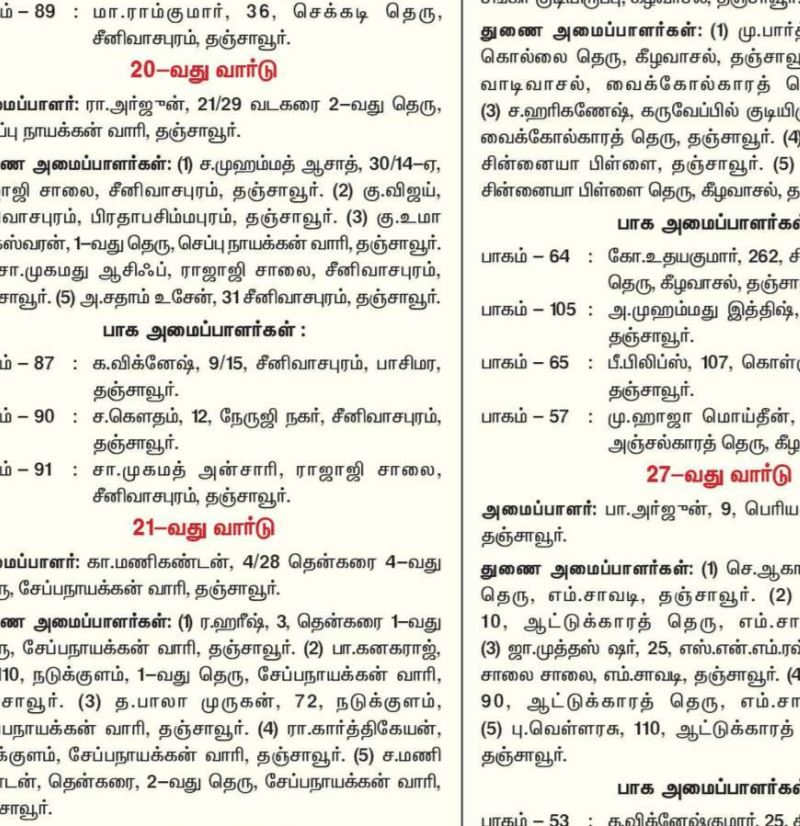 ம் – 89 : மா.ராம்குமார், 36, செக்கடி தெரு,
சீனிவாசபுரம், தஞ்சாவூர்.
20–வது வார்டு
மைப்பாளர்: ரா.அர்ஜுன், 21/29 வடகரை 2–வது தெரு,
ப்பு நாயக்கன் வாரி, தஞ்சாவூர்.
ணை அமைப்பாளர்கள்: (1) ச.முஹம்மத் ஆசாத், 30/14–ஏ,
ாஜி சாலை, சீனிவாசபுரம், தஞ்சாவூர். (2) கு.விஜய்,
வாசபுரம், பிரதாபசிம்மபுரம், தஞ்சாவூர். (3) கு.உமா
கஸ்வரன், 1–வது தெரு, செப்பு நாயக்கன் வாரி, தஞ்சாவூர்.
சா.முகமது ஆசிஃப், ராஜாஜி சாலை, சீனிவாசபுரம்,
சாவூர். (5) அ.சதாம் உசேன், 31 சீனிவாசபுரம், தஞ்சாவூர்.
பாக அமைப்பாளர்கள் :
ம் – 87 : க.விக்னேஷ், 9/15, சீனிவாசபுரம், பாசிமர,
தஞ்சாவூர்.
ம் – 90 : ச.கௌதம், 12, நேருஜி நகர், சீனிவாசபுரம்,
தஞ்சாவூர்.
ம் – 91 : சா.முகமத் அன்சாரி, ராஜாஜி சாலை,
சீனிவாசபுரம், தஞ்சாவூர்.
21–வது வார்டு
மைப்பாளர்: கா.மணிகண்டன், 4/28 தென்கரை 4–வது
ரு, சேப்பநாயக்கன் வாரி, தஞ்சாவூர்.
ணை அமைப்பாளர்கள்: (1) ர.ஹரீஷ், 3, தென்கரை 1–வது
ரு, சேப்பநாயக்கன் வாரி, தஞ்சாவூர். (2) பா.கனகராஜ்,
110, நடுக்குளம், 1–வது தெரு, சேப்பநாயக்கன் வாரி,
சாவூர். (3) த.பாலா முருகன், 72, நடுக்குளம்,
பநாயக்கன் வாரி, தஞ்சாவூர். (4) ரா.கார்த்திகேயன்,
க்குளம், சேப்பநாயக்கன் வாரி, தஞ்சாவூர். (5) ச.மணி
டன், தென்கரை, 2–வது தெரு, சேப்பநாயக்கன் வாரி,
சாவூர்.
துணை அமைப்பாளர்கள்: (1) மு.பார்த்
கொல்லை தெரு, கீழவாசல், தஞ்சாவூ
வாடிவாசல், வைக்கோல்காரத் தெ
(3) ச.ஹரிகணேஷ், கருவேப்பில் குடியிரு
வைக்கோல்காரத் தெரு, தஞ்சாவூர். (4)
சின்னையா பிள்ளை, தஞ்சாவூர். (5)
சின்னையா பிள்ளை தெரு, கீழவாசல், த
பாக அமைப்பாளர்கள்
பாகம் – 64 : கோ.உதயகுமார், 262, சி
தெரு, கீழவாசல், தஞ்சா
பாகம் – 105 : அ.முஹம்மது இத்திஷ்,
தஞ்சாவூர்.
பாகம் – 65 : பீ.பிலிப்ஸ், 107, கொள்
தஞ்சாவூர்.
பாகம் – 57 : மு.ஹாஜா மொய்தீன்,
அஞ்சல்காரத் தெரு, கீழ
27–வது வார்டு
அமைப்பாளர்: பா.அர்ஜுன், 9, பெரிய
தஞ்சாவூர்.
துணை அமைப்பாளர்கள்: (1) செ.ஆகா
தெரு, எம்.சாவடி, தஞ்சாவூர். (2)
10, ஆட்டுக்காரத் தெரு, எம்.சா
(3) ஜா.முத்தஸ் ஷர், 25, எஸ்.என்.எம்.ரஹ்
சாலை சாலை, எம்.சாவடி, தஞ்சாவூர். (4
90, ஆட்டுக்காரத் தெரு, எம்.சா
(5) பு.வெள்ளரசு, 110, ஆட்டுக்காரத்
தஞ்சாவூர்.
பாக அமைப்பாளர்கள்
பாகம் – 53 : க.விக்னேஷ்குமார், 25,